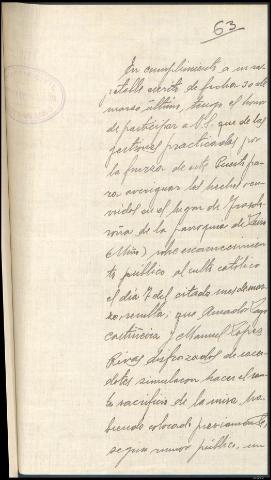 63
En cumplimiento a su res-
petable escrito de fecha 30 de
marzo último, tengo el honor
de participar a V.S. que de las
gestiones practicadas por
la fuerza de este Puesto pa-
ra averiguar los hechos ocu-
rridos en el lugar de
de la parroquia de
(Miño) sobre escarnecimien-
to público al culto católico
el día 7 del citado mes de mar-
zo, resulta; que Amador
y Manuel López
Rivas disfrazados de sacer-
dotes simularon hacer el san-
to sacrificio de la misa, ha-
biendo colocado previamente,
segun rumor público, un